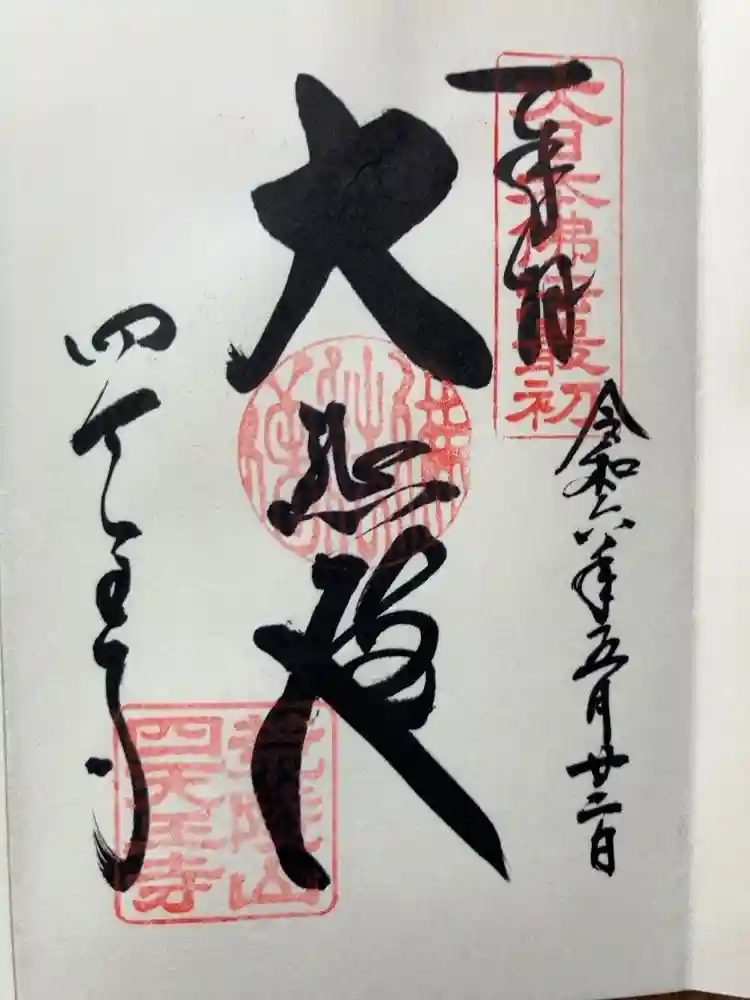 奉拝
大日本佛法最初
令和六年五月廿二日
大悲殿
四天王寺
荒陵山
四天王寺